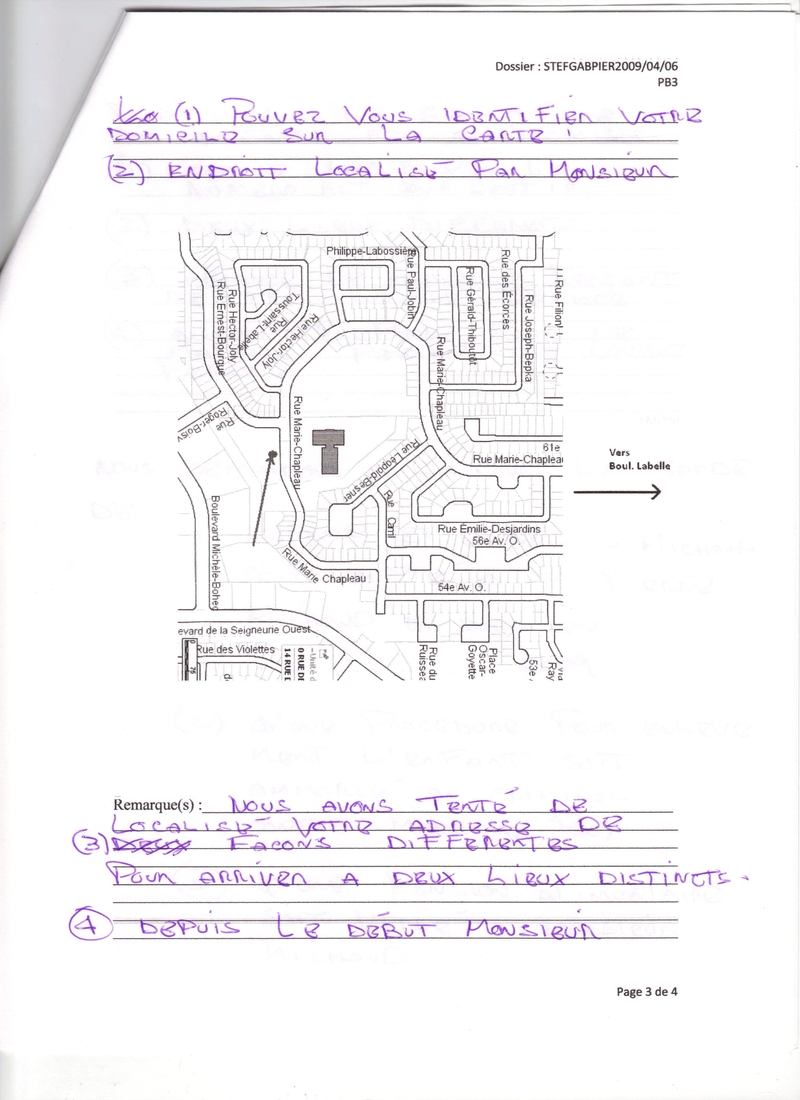 Dossier : STEFGABPIER2009/04/06
PB3
(1) POUVEZ VOUS IDENTIFIER VOTRE
DOMICILE SUR LA CARTE !
(2) ENDROIT LOCALISÉ PAR MONSIEUR
Philippe-Labossière
Rue Paul-Jobin
Rue Gérald-Thiboutôt
Rue des Écorces
Rue Joseph-Bepka
Rue Fillion
Rue Ernest-Bourque
Rue Hector-Joly
Rue Toussaint-Labelle
Rue Hector-Joly
Rue Marie-Chapleau
Rue Marie-Chapleau
Rue Roger-Boisv
61e
Rue Marie-Chapleau
Vers
Boul. Labelle
Rue Léopold-Besner
Rue Camil
Boulevard Michèle-Bohec
Rue Émilie-Desjardins
56e Av. O.
Rue Marie Chapleau
54e Av. O.
evard de la Seigneurie Ouest
Rue des Violettes
Rue du Ruisseau
Place Oscar-Goyette
53e
Ray
0 RUE DE
14 RUE D
Unité d
Remarque(s) : NOUS AVONS TENTÉ DE
LOCALISÉ VOTRE ADRESSE DE
(3) DEUX FACONS DIFFÉRENTES
POUR ARRIVER A DEUX LIEUX DISTINCTS.
4 DEPUIS LE DÉBUT MONSIEUR
Page 3 de 4